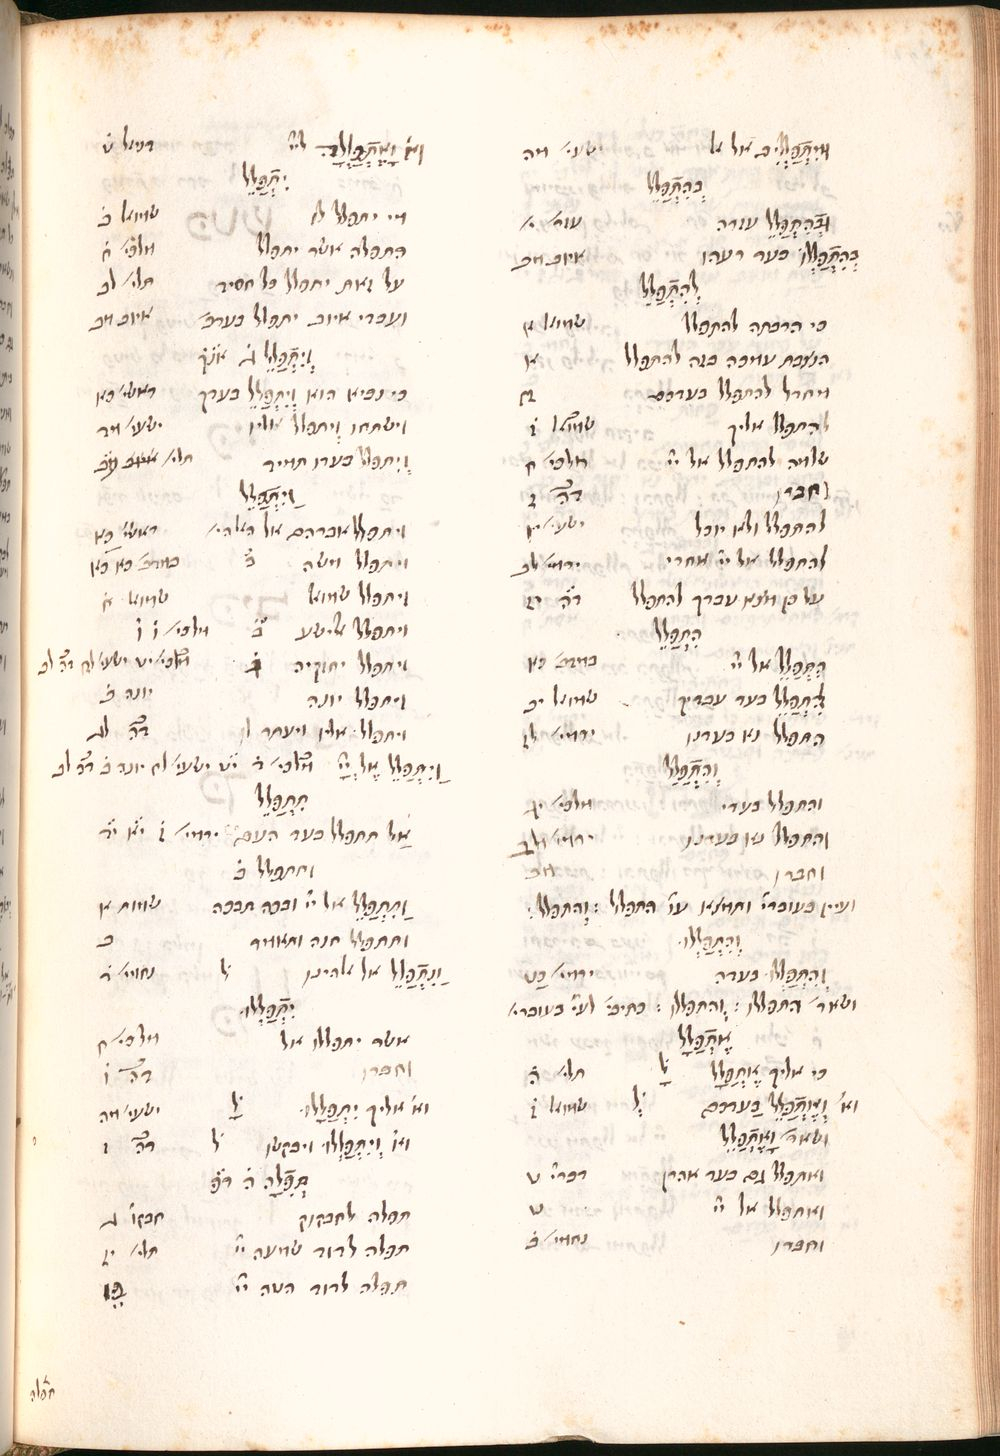 ומתפללים אל אל ישעי׳ מה
בהתפלל
ובהתפלל עזרה עזר׳ י
בהתפללו בעד רעהו איוב מב
להתפלל
כי הרבתה להתפלל שמוא׳ א
הנצבת עמכה בזה להתפלל א
מחדל להתפלל בעדכם
להתפלל אליך שמוא׳ ז
שלמה להתפלל אל יי׳ מלכי׳ ח
וחברו דה׳ ז
להתפלל ולא יוכל ישעי׳
להתפלל אל יי׳ אחרי ירמי׳ לב
על כן מצא עבדך להתפלל דה׳
התפלל
התפלל אל יי׳ במדב׳ כא
התפלל בעד עבדיך שמוא׳ יב
התפלל נא בעדנו ירמי׳ לז
והתפלל
והתפלל בעדי מלכי׳ יג
והתפלל נא בעדנו ירמי׳ מב
וחברו מב
ועיין בעוברי׳ ותמצא ע״ז התפלל : והתפלל :
והתפללו
והתפללו בעדה ירמי׳ כט
ושאר׳ התפללו : והתפללו : כתיב׳ לעי׳ בעוברי׳
אתפלל
כי אליך אתפלל ל׳ תלי׳ ה
וא׳ ואתפלל בעדכם ל׳ שמוא׳ ז
ושאר׳ ואתפלל
ואתפלל גם בעד אהרן דברי׳ ט
ואתפלל אל יי׳ ט
וחברו נחמי׳ ב
וא׳ ואתפללה ליי׳ דניאל ט
יתפלל
מי יתפלל לו שמוא׳ ב
התפלה אשר יתפלל מלכי׳ ח
על זאת יתפלל כל חסיד תלי׳ לב
ועבדי איוב יתפלל בעדכ׳ איוב מב
ויתפלל ג׳
כי נביא הוא ויתפלל בעדך ראשי׳ כא
וישתחו ויתפלל אליו ישעי׳ מד
ויתפלל בעדו תמיד תלי׳ עב
ויתפלל
ויתפלל אברהם אל האלהי׳ ראשי׳ כא
ויתפלל משה ב׳ במדב׳ כא כא
ויתפלל שמואל שמוא׳ ח
ויתפלל אלישע ב׳ מלכי׳ ו ו
ויתפלל יחזקיה מלכי׳ יט ישעי׳ לח דה׳ לב
ויתפלל יונה יונה ב
ויתפלל אליו ויעתר לו דה׳ לג
ויתפלל אל יי׳ מלכי׳ ד יט ישעי׳ לח יונה ב דה׳ לב
תתפלל
אל תתפלל בעד העם ירמי׳ ז יא יד
ותתפלל ב׳
ותתפלל אל יי׳ ובכה תבכה שמוא׳ א
ותתפלל חנה ותאמר ב
ונתפלל אל אלהינו ל׳ נחמי׳ ד
יתפללו
אשר יתפללו אל מלכי׳ ח
וחברו דה׳ ו
וא׳ אליך יתפללו ל׳ ישעי׳ מה
וא׳ ויתפללו ויבקשו ל׳ דה׳ ז
תפלה ה׳ רפ׳
תפלה לחבקוק חבקו׳ ג
תפלה לדוד שמעה יי׳ תלי׳ יז
תפלה לדוד הטה יי׳ פו
תפלה